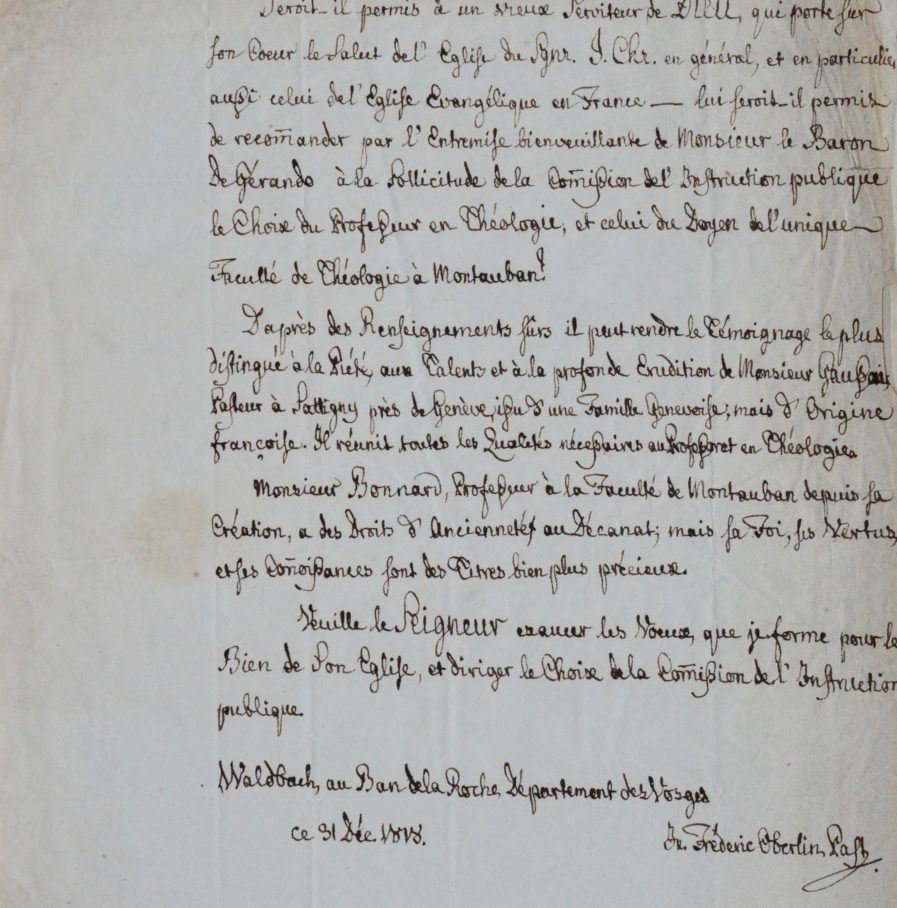 Seroit-il permis à un vieux Serviteur de DIEU, qui porte sur
son Coeur le Salut de l'Eglise du Sgnr. J. Chr. en général, et en particulier
aussi celui de l'Eglise Evangélique en France — lui seroit-il permis
de recom̄ander par l'Entremise bienveuillante de Monsieur le Baron
De Gérando à la Sollicitude de la Com̄ission de l'Instruction publique
le Choix du Professeur en Théologie, et celui du Doyen de l'unique
Faculté de Théologie à Montauban?
D'après des Renseignements sûrs il peut rendre le Témoignage le plus
distingué à la Piété, aux Talents et à la profonde Erudition de Monsieur Gaussen,
Pasteur à Sattigny près de Genève, issu d'une Famille Genevoise, mais d'Origine
françoise. Il réunit toutes les Qualités nécessaires au Professorat en Théologie.
Monsieur Bonnard, Professeur à la Faculté de Montauban depuis sa
Création, a des Droits d'Ancienneté au Décanat; mais sa Foi, ses Vertus,
et ses Con̄oissances sont des Titres bien plus précieux.
Veuille le Seigneur exaucer les Voeux, que je forme pour le
Bien de Son Eglise, et diriger le Choix de la Com̄ission de l'Instruction
publique.
Waldbach, au Ban de la Roche, Département des Vosges
ce 31 Déc. 1818.
Jn. Fréderic Oberlin, Past.